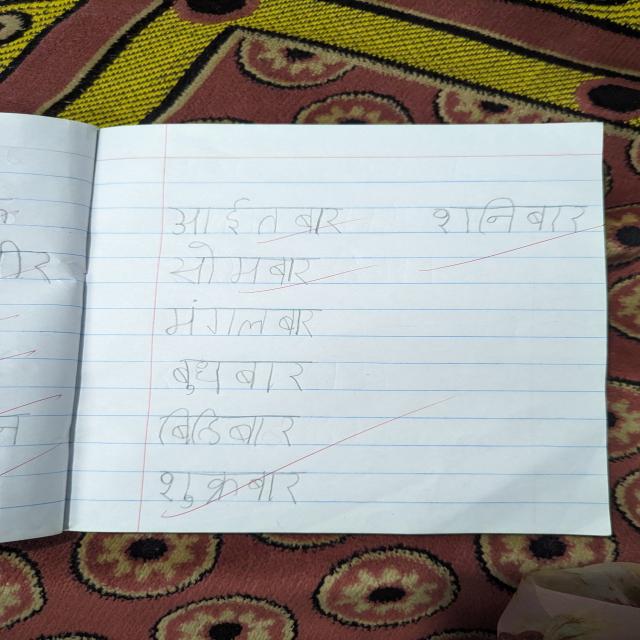 आईतबार शनिबार
सोमबार
मंगलबार
बुधबार
बिहिबार
शुक्रबार